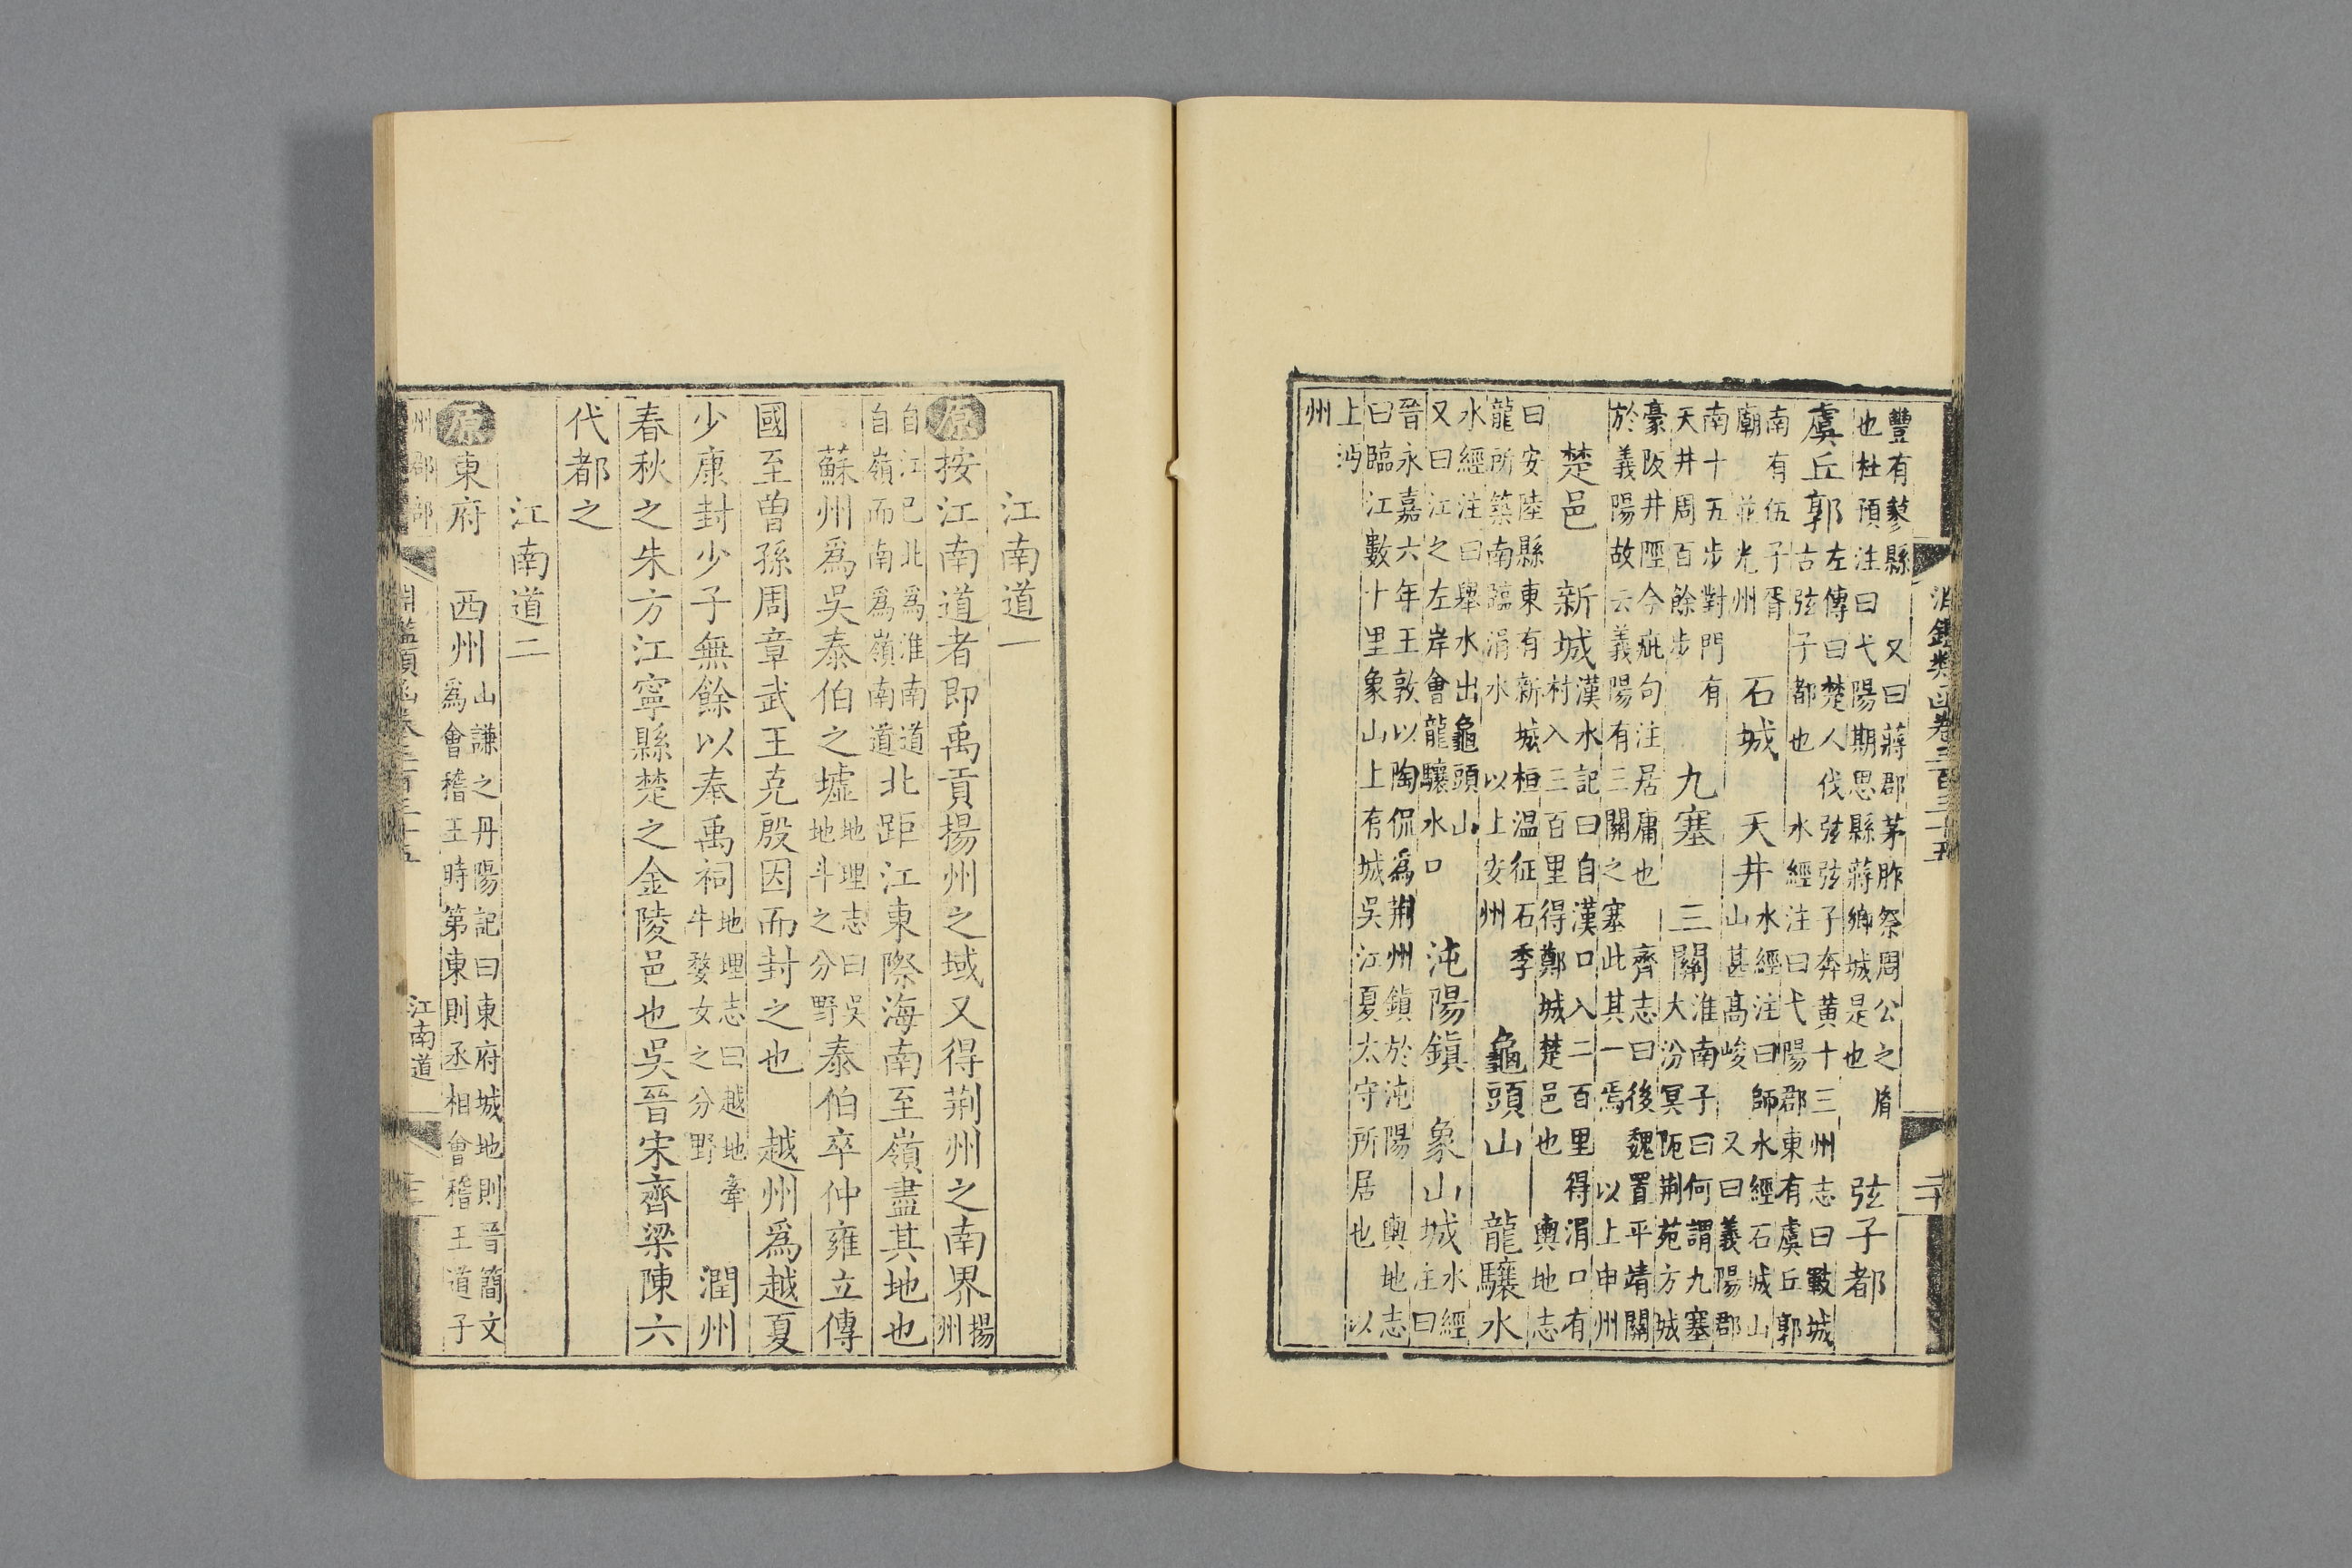 豐有蓼縣　又曰蔣郡茅胙祭周公之胤
也杜預注曰弋陽期思縣蔣鄉城是也
弦子都
虞丘郭
左傳曰楚人伐弦弦子奔黄十三州志曰䵝城
古弦子都也　水經注曰弋陽郡東有虞丘郭
南有伍子胥
廟　並光州
石城　天井
水經注曰師水經石城山
山甚高峻　又曰義陽郡
南十五步對門有
天井周百餘步
九塞　三關
淮南子曰何謂九塞
大汾冥阨荆苑方城
豪阪井陘令疵句注居庸也
於義陽故云義陽有三關之塞
齊志曰後魏置平靖關
此其一焉　以上申州
楚邑　新城
漢水記曰自漢口入二百里得涓口有
村入三百里得鄭城楚邑也　輿地志
曰安陸縣東有新城桓温征石季
龍所築南臨涓水　以上安州
龜頭山　龍驤水
水經注曰舉水出龜頭山
又曰江之左岸會龍驤水口
沌陽鎮　象山城
水經
注曰
晉永嘉六年王敦以陶侃爲荆州鎮於沌陽　輿地志
曰臨江數十里象山上有城吳江夏太守所居也　以
上沔
州
江南道一
原按江南道者即禹貢揚州之域又得荆州之南界
揚
州
自江已北爲淮南道
自嶺而南爲嶺南道
北距江東際海南至嶺盡其地也
蘇州爲吳泰伯之墟
地理志曰吳
地斗之分野
泰伯卒仲雍立傳
國至曾孫周章武王克殷因而封之也　越州爲越夏
少康封少子無餘以奉禹祠
地理志曰越地牽
牛婺女之分野
潤州
春秋之朱方江寧縣楚之金陵邑也吳晉宋齊梁陳六
代都之
江南道二
原東府　西州
山謙之丹陽記曰東府城地則晉簡文
爲會稽王時第東則丞相會稽王道子
淵鑑類函卷三百三十五　江南道